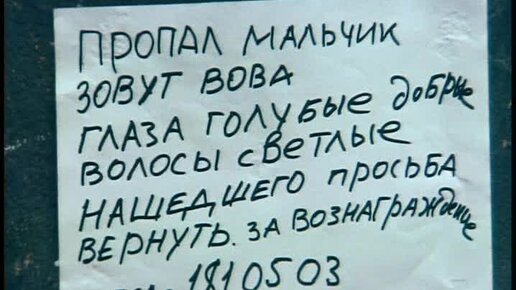 ПРОПАЛ МАЛЬЧИК
ЗОВУТ ВОВА
ГЛАЗА ГОЛУБЫЕ добрые
ВОЛОСЫ СВЕТЛЫЕ
НАШЕДШЕГО ПРОСЬБА
ВЕРНУТЬ. ЗА ВОЗНАГРАЖДЕНИЕ
1810503